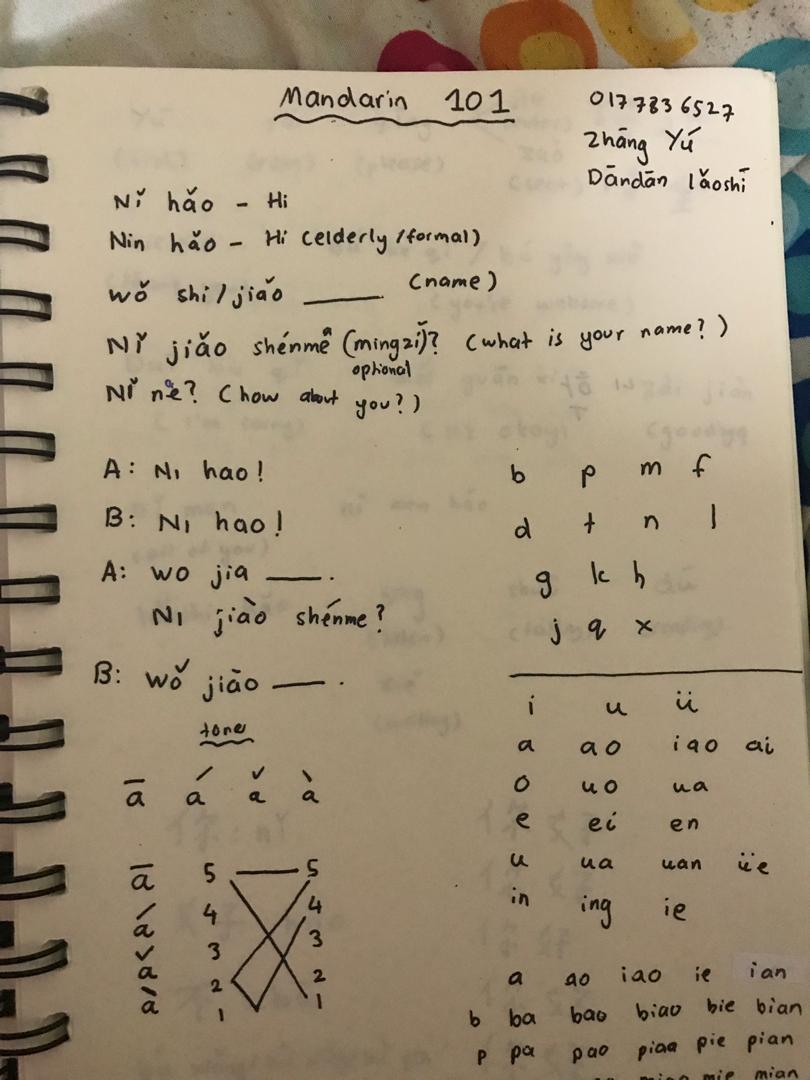 Mandarin 101
017 783 6527
Zhāng Yú
Dāndān lǎoshī
Nǐ hǎo – Hi
Nin hǎo – Hi (elderly/formal)
wǒ shi/jiǎo ____ (name)
Nǐ jiǎo shénmê (mingzǐ)? (what is your name?)
optional
Nǐ ne? (how about you?)
A: Nı hao!
B: Nı hao!
A: wo jia ____.
Nı jiào shénme?
B: wǒ jiāo ____.
tone
ā á ǎ à
ā 5 5
á 4 4
ǎ 3 3
à 2 2
1 1
b p m f
d t n l
g k h
j q x
i u ü
a ao iao ai
o uo ua
e ei en
u ua uan üe
in ing ie
a ao iao ie ian
b ba bao biao bie bian
p pa pao piaa pie pian
mie mian